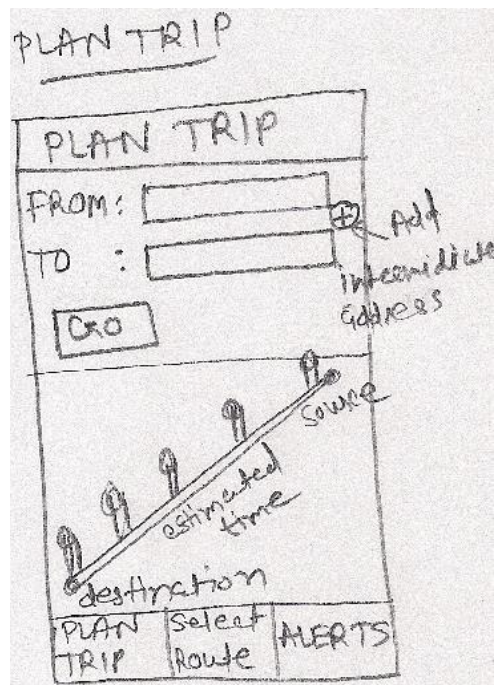 PLAN TRIP
PLAN TRIP
FROM:
TO :
Add
intermidiate
address
GO
source
estimated
time
destination
PLAN
TRIP
Select
Route
ALERTS